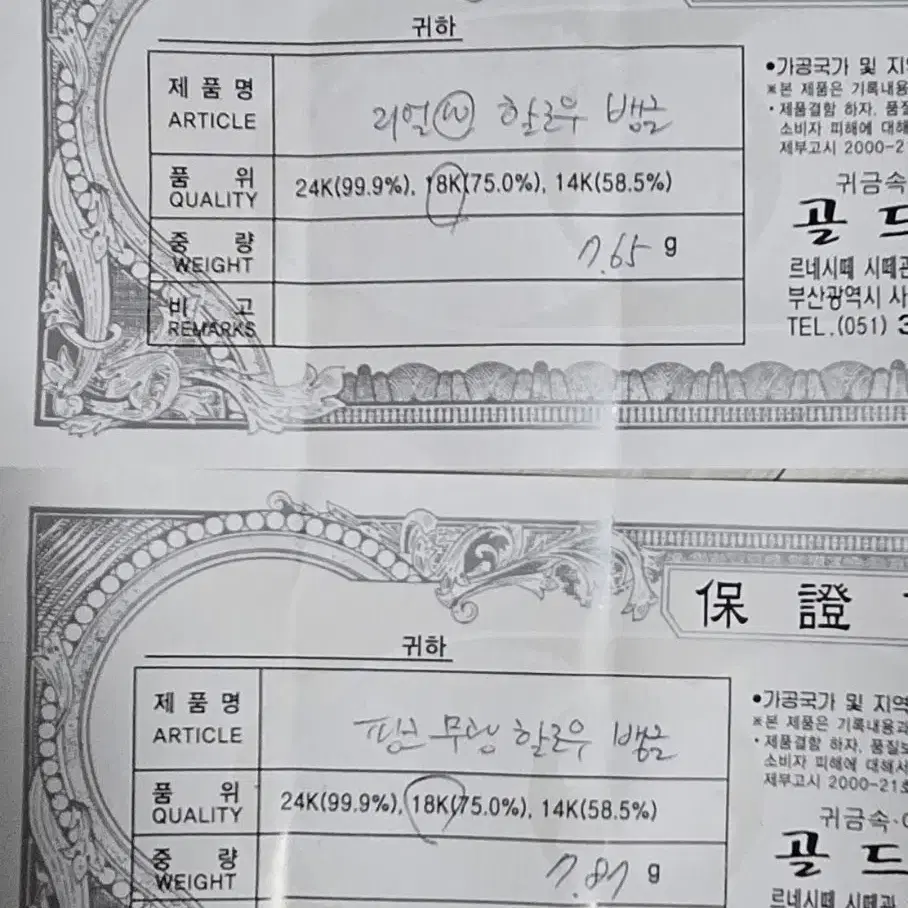 귀하
제 품 명
ARTICLE
리얼 W 할로우 뱅글
품 위
QUALITY
24K(99.9%), 18K(75.0%), 14K(58.5%)
중 량
WEIGHT
7.65 g
비 고
REMARKS
•가공국가 및 지
※본 제품은 기록내용
• 제품결함 하자, 품질
소비자 피해에 대해
제부고시 2000-2
귀금속
골 드
르네시떼 시떼관
부산광역시 사
TEL.(051) 3
保 證
귀하
제 품 명
ARTICLE
핑크 무광 할로우 뱅글
품 위
QUALITY
24K(99.9%), 18K(75.0%), 14K(58.5%)
중 량
WEIGHT
7.87 g
•가공국가 및 지역
※본 제품은 기록내용과
• 제품결함 하자, 품질보
소비자 피해에 대해서
제부고시 2000-21호
귀금속·
골 드
르네시떼 시떼과